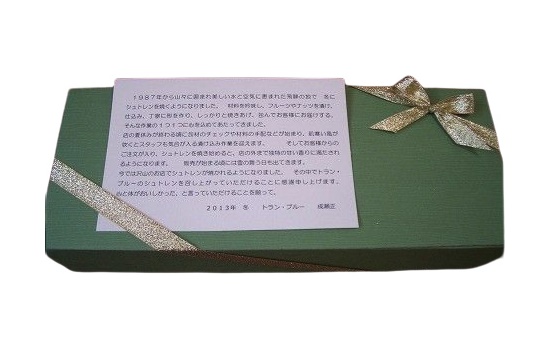 1987年から山々に囲まれ美しい水と空気に恵まれた飛騨の地で 冬に
シュトレンを焼くようになりました。 材料を吟味し、フルーツやナッツを漬け、
仕込み、丁寧に形を作り、しっかりと焼きあげ、包んでお客様にお届けする。
そんな作業の1つ1つに心を込めてあたってきました。
店の夏休みが終わる頃に資材のチェックや材料の手配などが始まり、肌寒い風が
吹くとスタッフも気合が入る漬け込み作業を迎えます。 そしてお客様からの
ご注文が入り、シュトレンを焼き始めると、店の外まで独特の甘い香りに満たされ
るようになります。 販売が始まる頃には雪の舞う日も出てきます。
今では沢山のお店でシュトレンが焼かれるようになりました。 その中でトラン・
ブルーのシュトレンを召し上がっていただけることに感謝申し上げます。
心と体がおいしかった、と言っていただけることを願って。
2013年 冬 トラン・ブルー 成瀬正